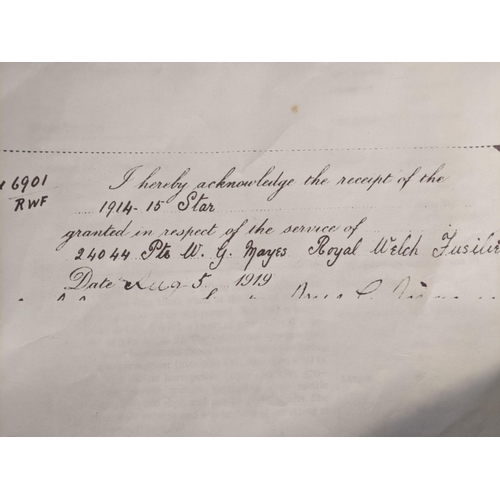 6901
RWF
I hereby acknowledge the receipt of the
1914-15 Star
granted in respect of the service of
24044 Pte W. G. Mayes Royal Welch Fusilie
Date Aug 5 1919